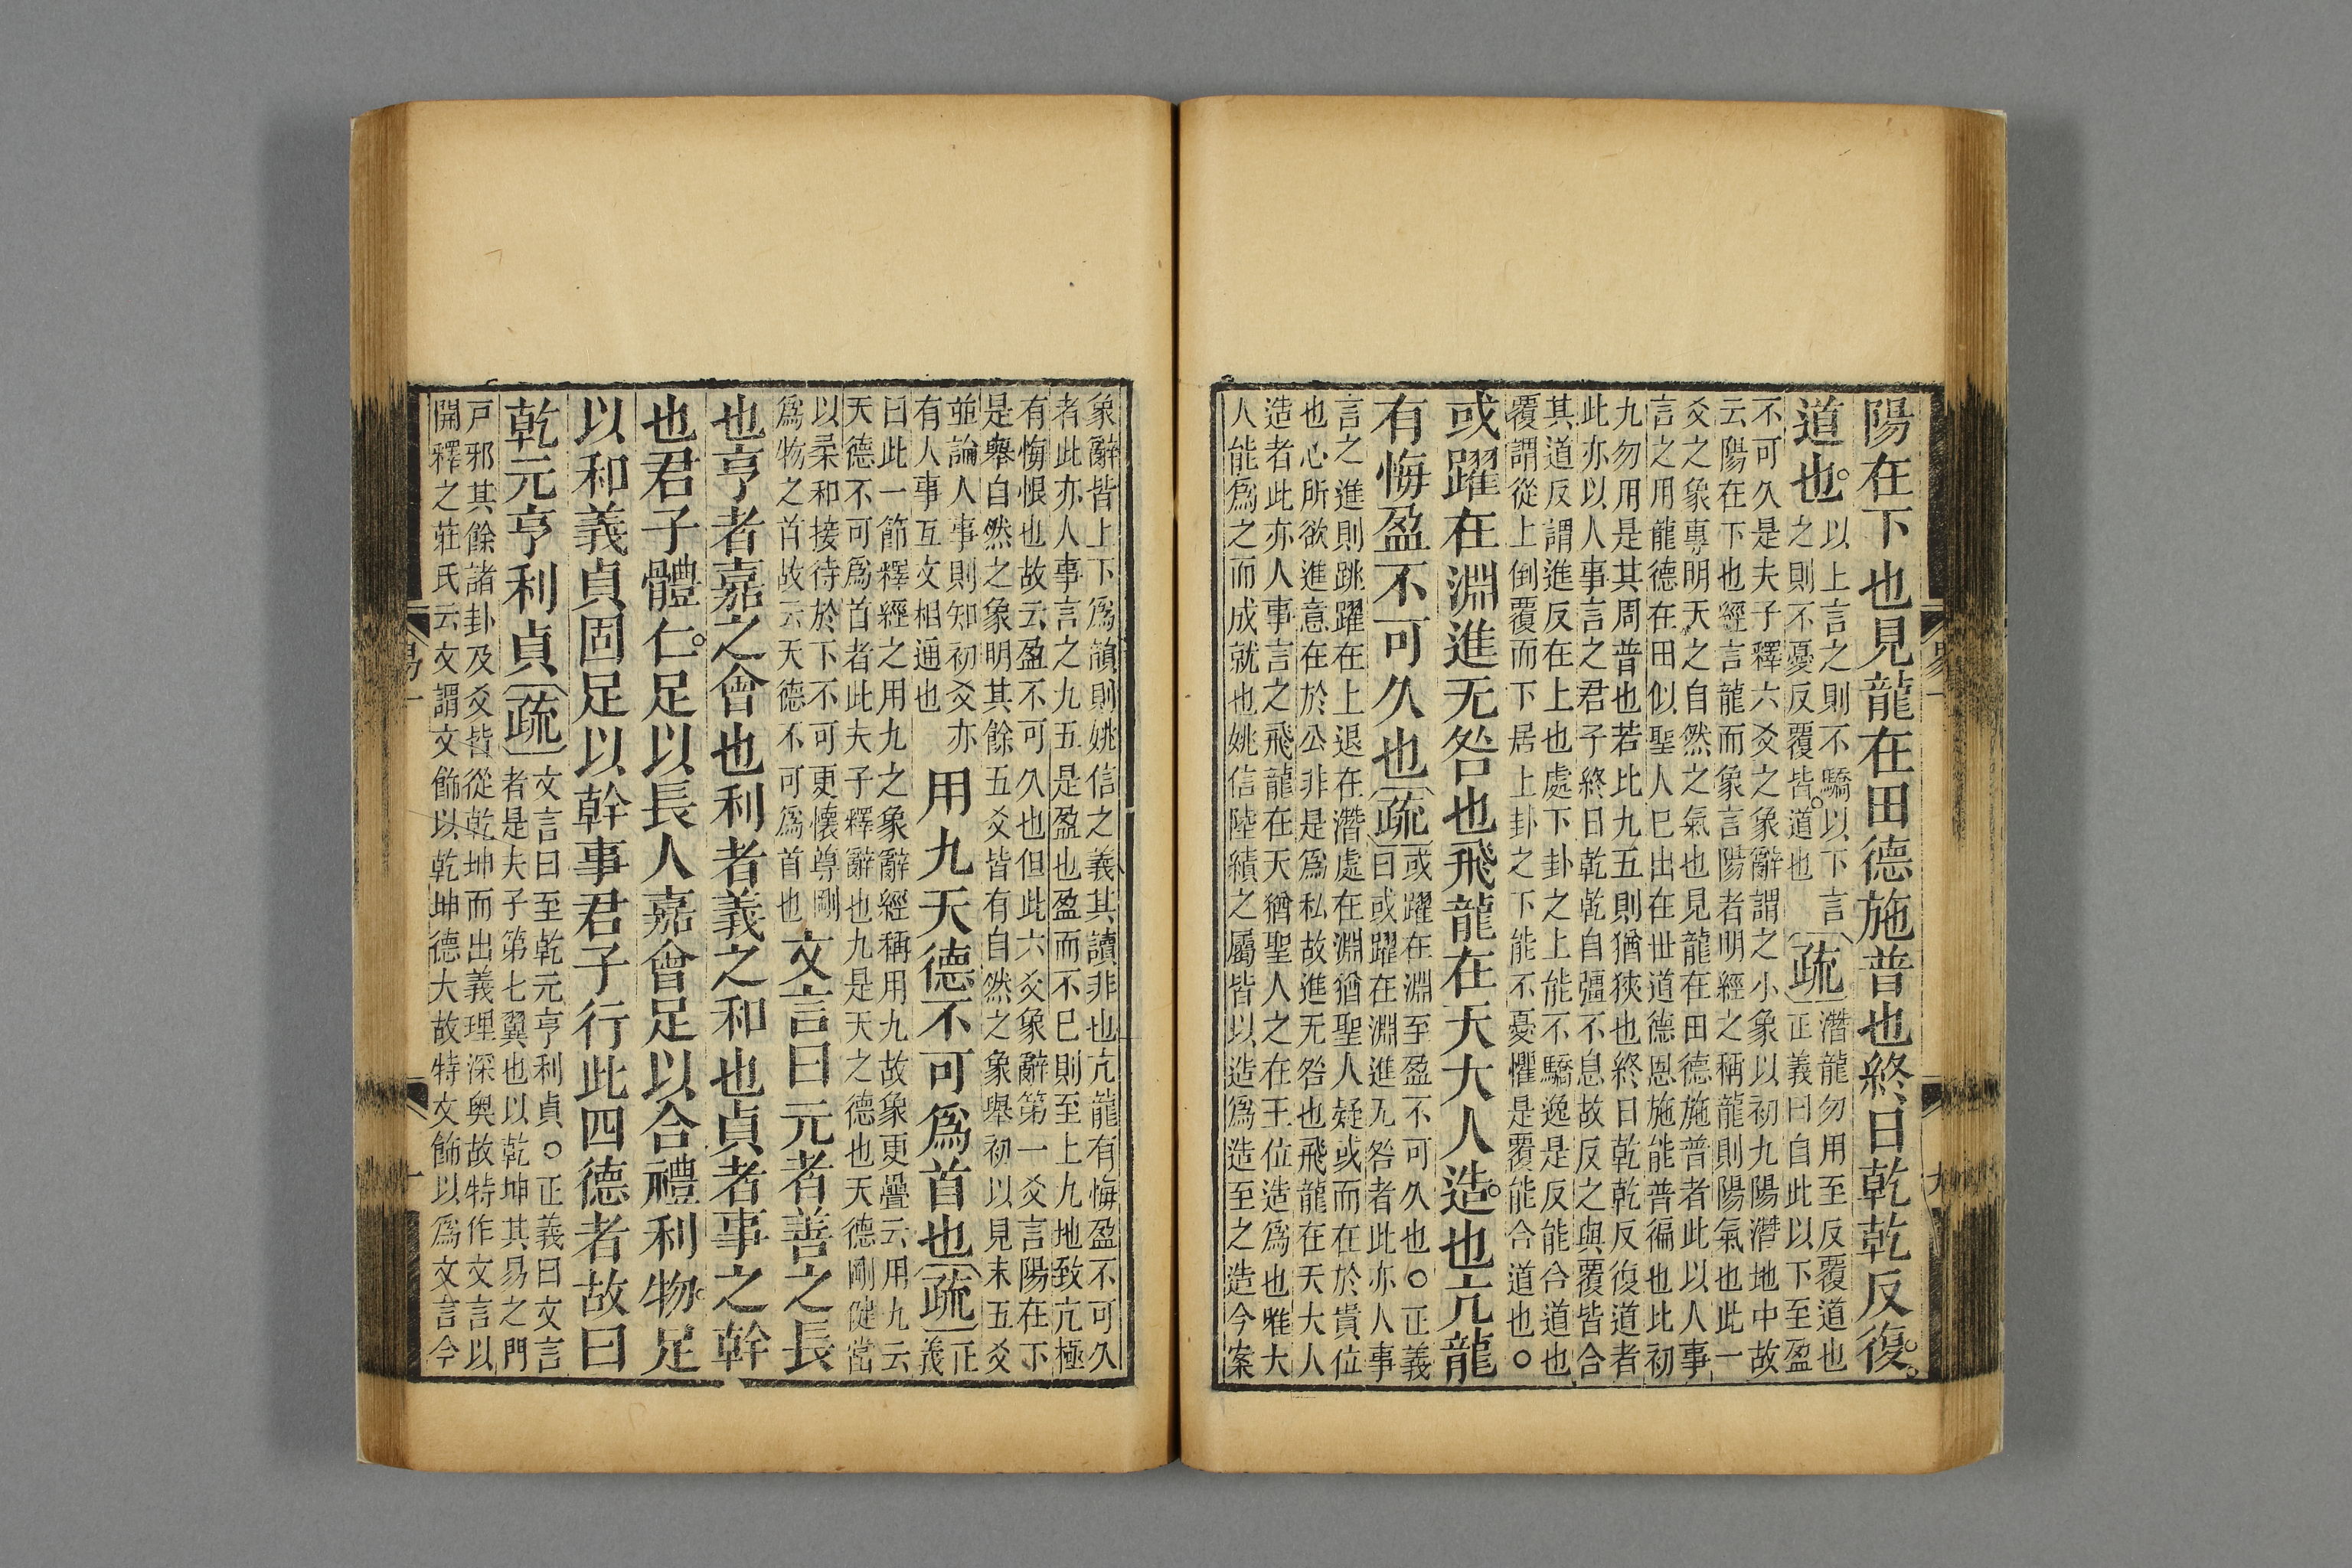 陽在下也見龍在田德施普也終日乾乾反復。
道也。以上言之則不驕以下言
之則不憂反覆皆道也。疏潛龍勿用至反覆道也
正義曰自此以下至盈
不可久是夫子釋六爻之象辭謂之小象以初九陽潛地中故
云陽在下也經言龍而象言陽者明經之稱龍則陽氣也此一
爻之象專明天之自然之氣也見龍在田德施普者此以人事
言之用龍德在田似聖人已出在世道德恩施能普徧也比初
九勿用是其周普也若比九五則猶狹也終日乾乾反復道者
此亦以人事言之君子終日乾乾自彊不息故反之與覆皆合
其道反謂進反在上也處下卦之上能不驕逸是反能合道也
覆謂從上倒覆而下居上卦之下能不憂懼是覆能合道也○
或躍在淵進无咎也飛龍在天大人造。也亢龍
有悔盈不可久也疏或躍在淵至盈不可久也○正義
曰或躍在淵進无咎者此亦人事
言之進則跳躍在上退在潛處在淵猶聖人疑或而在於貴位
也心所欲進意在於公非是爲私故進无咎也飛龍在天大人
造者此亦人事言之飛龍在天猶聖人之在王位造爲也唯大
人能爲之而成就也姚信陸績之屬皆以造爲造至之造今案
易一
九
象辭皆上下爲韻則姚信之義其讀非也亢龍有悔盈不可久
者此亦人事言之九五是盈也盈而不已則至上九地致亢極
有悔恨也故云盈不可久也但此六爻象辭第一爻言陽在下
是舉自然之象明其餘五爻皆有自然之象舉初以見末五爻
並論人事則知初爻亦
有人事互文相通也用九天德不可爲首也疏正
義
曰此一節釋經之用九之象辭經稱用九故象更疊云用九云
天德不可爲首者此夫子釋辭也九是天之德也天德剛健當
以柔和接待於下不可更懷尊剛
爲物之首故云天德不可爲首也文言曰元者善之長
也亨者嘉之會也利者義之和也貞者事之幹
也君子體仁。足以長人嘉會足以合禮利物。足
以和義貞固足以幹事君子行此四德者故曰
乾元亨利貞疏文言曰至乾元亨利貞○正義曰文言
者是夫子第七翼也以乾坤其易之門
戸邪其餘諸卦及爻皆從乾坤而出義理深奥故特作文言以
開釋之莊氏云文謂文飾以乾坤德大故特文飾以爲文言今
易一
十